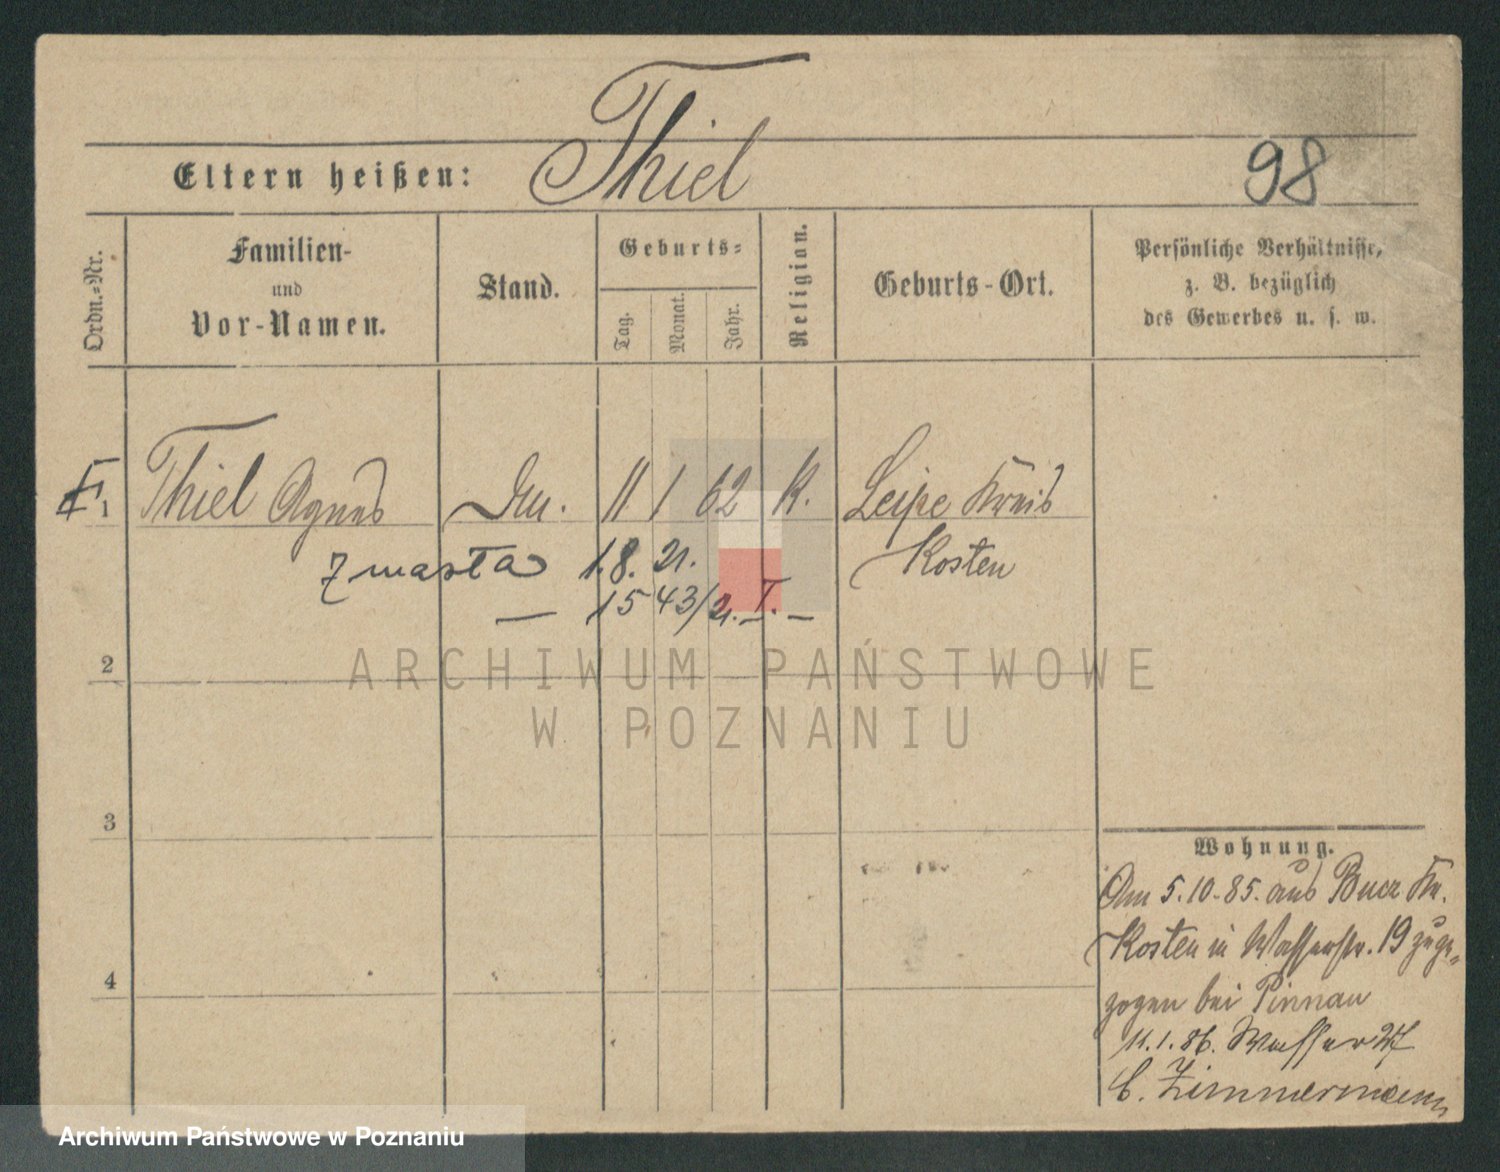 Thiel
Eltern heißen:
98
Ordn.-Nr.
Familien-
und
Vor-Namen.
Stand.
Geburts-
Tag.
Monat.
Jahr.
Religion.
Geburts-Ort.
Persönliche Verhältnisse,
z. B. bezüglich
des Gewerbes u. s. w.
1 Thiel Agnes 11 1 62 K. Leipe Kreis
Kosten
zmarła 1.8. 21.
— 1543/21. I. —
2
3
4
ARCHIWUM PAŃSTWOWE
W POZNANIU
Wohnung.
Am 5.10.85. aus Bucz Kr.
Kosten in Wasserstr. 19 zuge-
zogen bei Pinnau
11.1.86. Wasser 27
C. Zimmermann
Archiwum Państwowe w Poznaniu